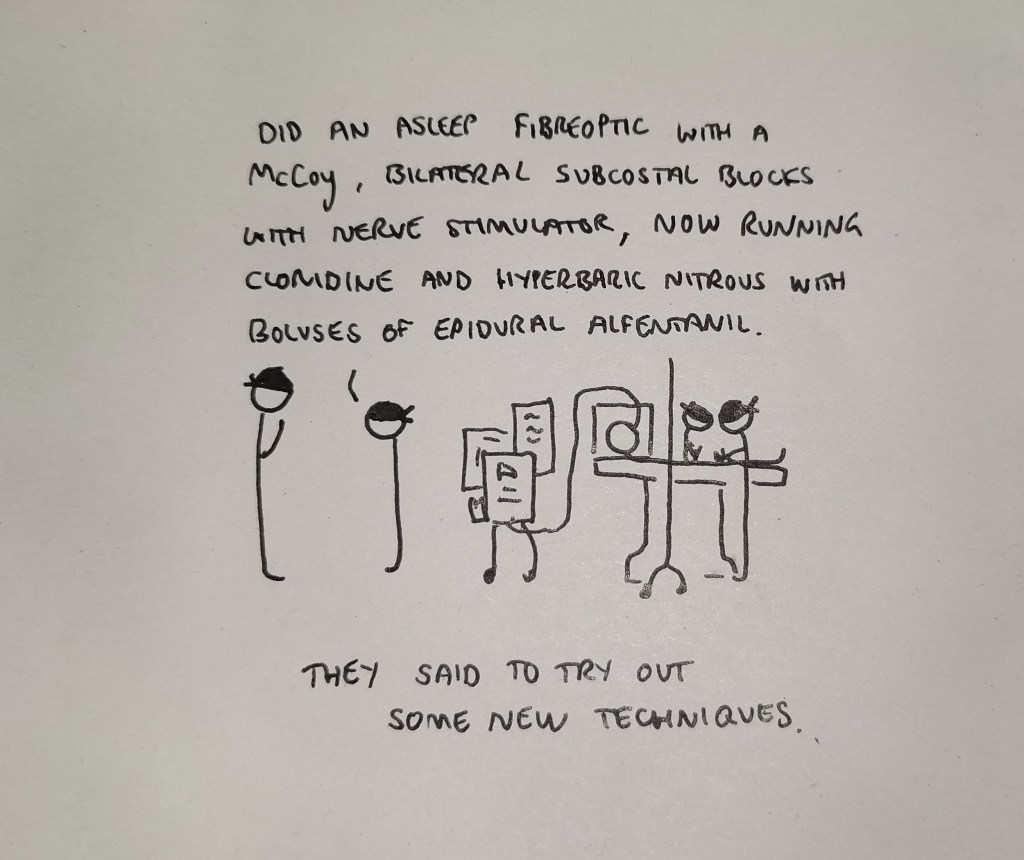 DID AN ASLEEP FIBREOPTIC WITH A
McCoy, BILATERAL SUBCOSTAL BLOCKS
WITH NERVE STIMULATOR, NOW RUNNING
CLONIDINE AND HYPERBARIC NITROUS WITH
BOLUSES OF EPIDURAL ALFENTANIL.
THEY SAID TO TRY OUT
SOME NEW TECHNIQUES.